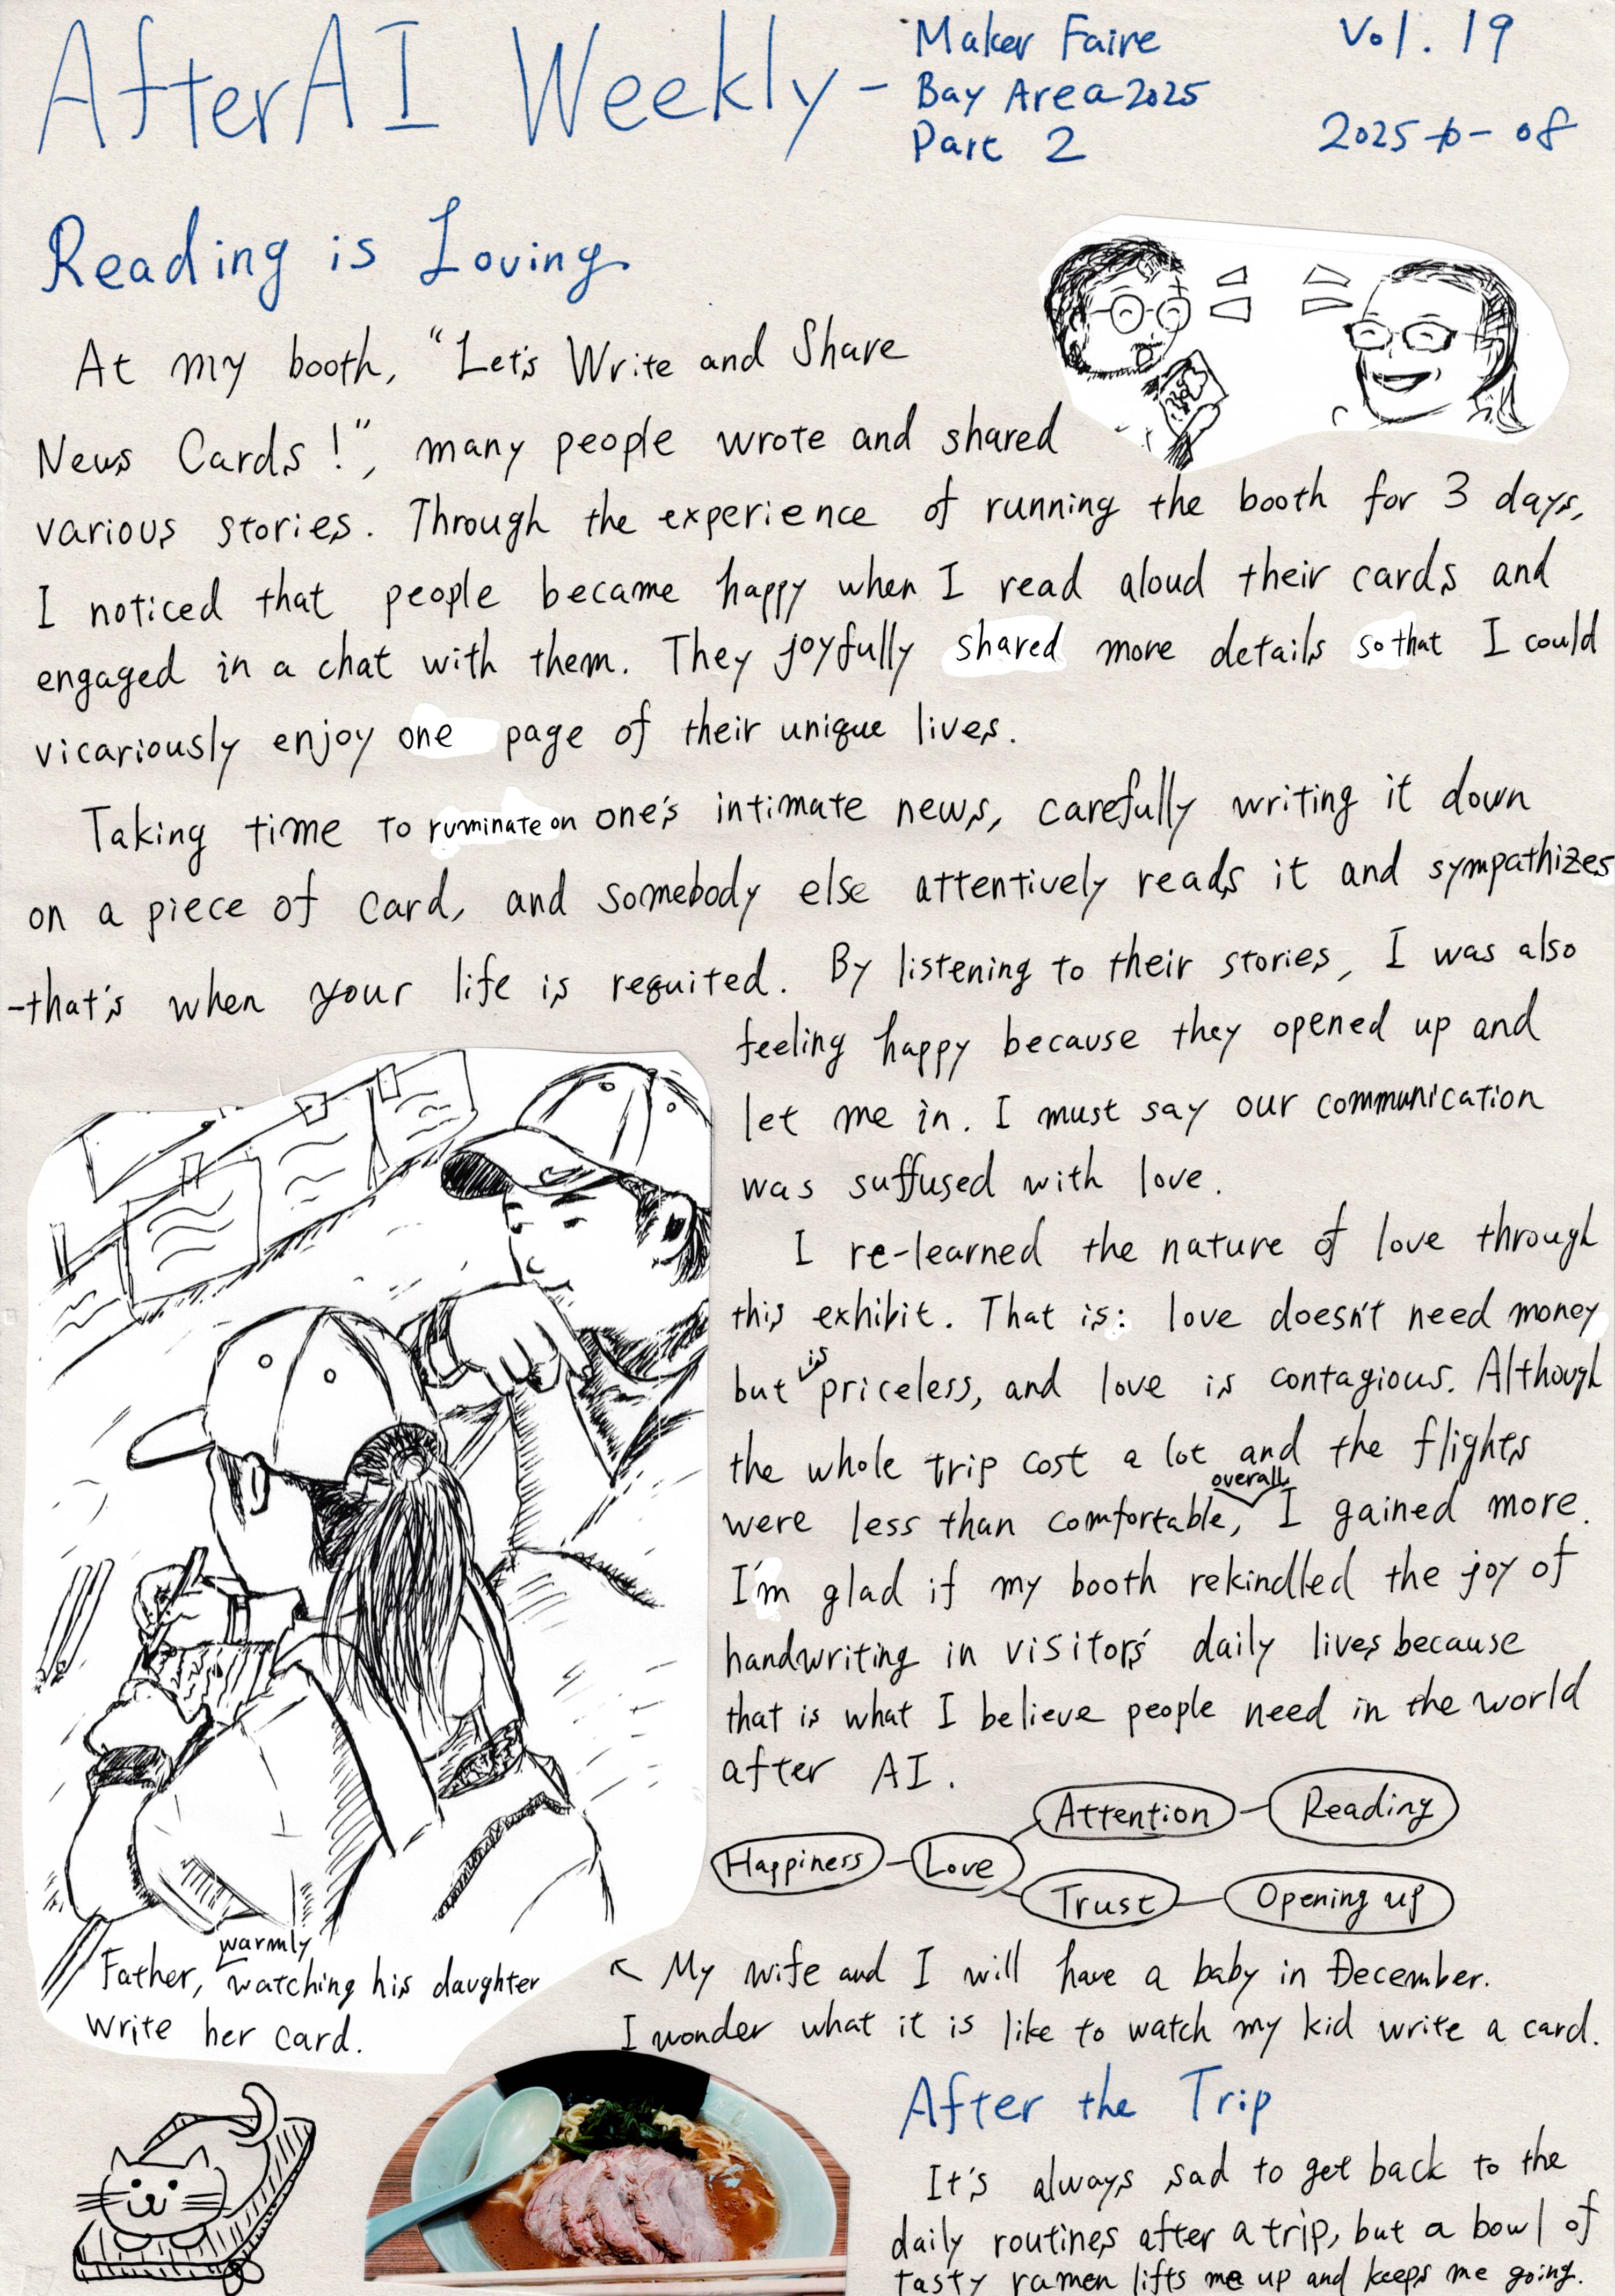 AfterAI Weekly - Maker Faire
Bay Area 2025
Part 2
Vol. 19
2025-10-08
Reading is Loving
At my booth, "Let's Write and Share
News Cards!", many people wrote and shared
various stories. Through the experience of running the booth for 3 days,
I noticed that people became happy when I read aloud their cards and
engaged in a chat with them. They joyfully shared more details so that I could
vicariously enjoy one page of their unique lives.
Taking time to ruminate on one's intimate news, carefully writing it down
on a piece of card, and somebody else attentively reads it and sympathizes
-that's when your life is requited. By listening to their stories, I was also
feeling happy because they opened up and
let me in. I must say our communication
was suffused with love.
I re-learned the nature of love through
this exhibit. That is: love doesn't need money
but is priceless, and love is contagious. Although
the whole trip cost a lot and the flights
were less than comfortable, overall I gained more.
I'm glad if my booth rekindled the joy of
handwriting in visitors' daily lives because
that is what I believe people need in the world
after AI.
Happiness - Love - Attention - Reading
Trust - Opening up
Father, warmly watching his daughter
write her card.
← My wife and I will have a baby in December.
I wonder what it is like to watch my kid write a card.
After the Trip
It's always sad to get back to the
daily routines after a trip, but a bowl of
tasty ramen lifts me up and keeps me going.